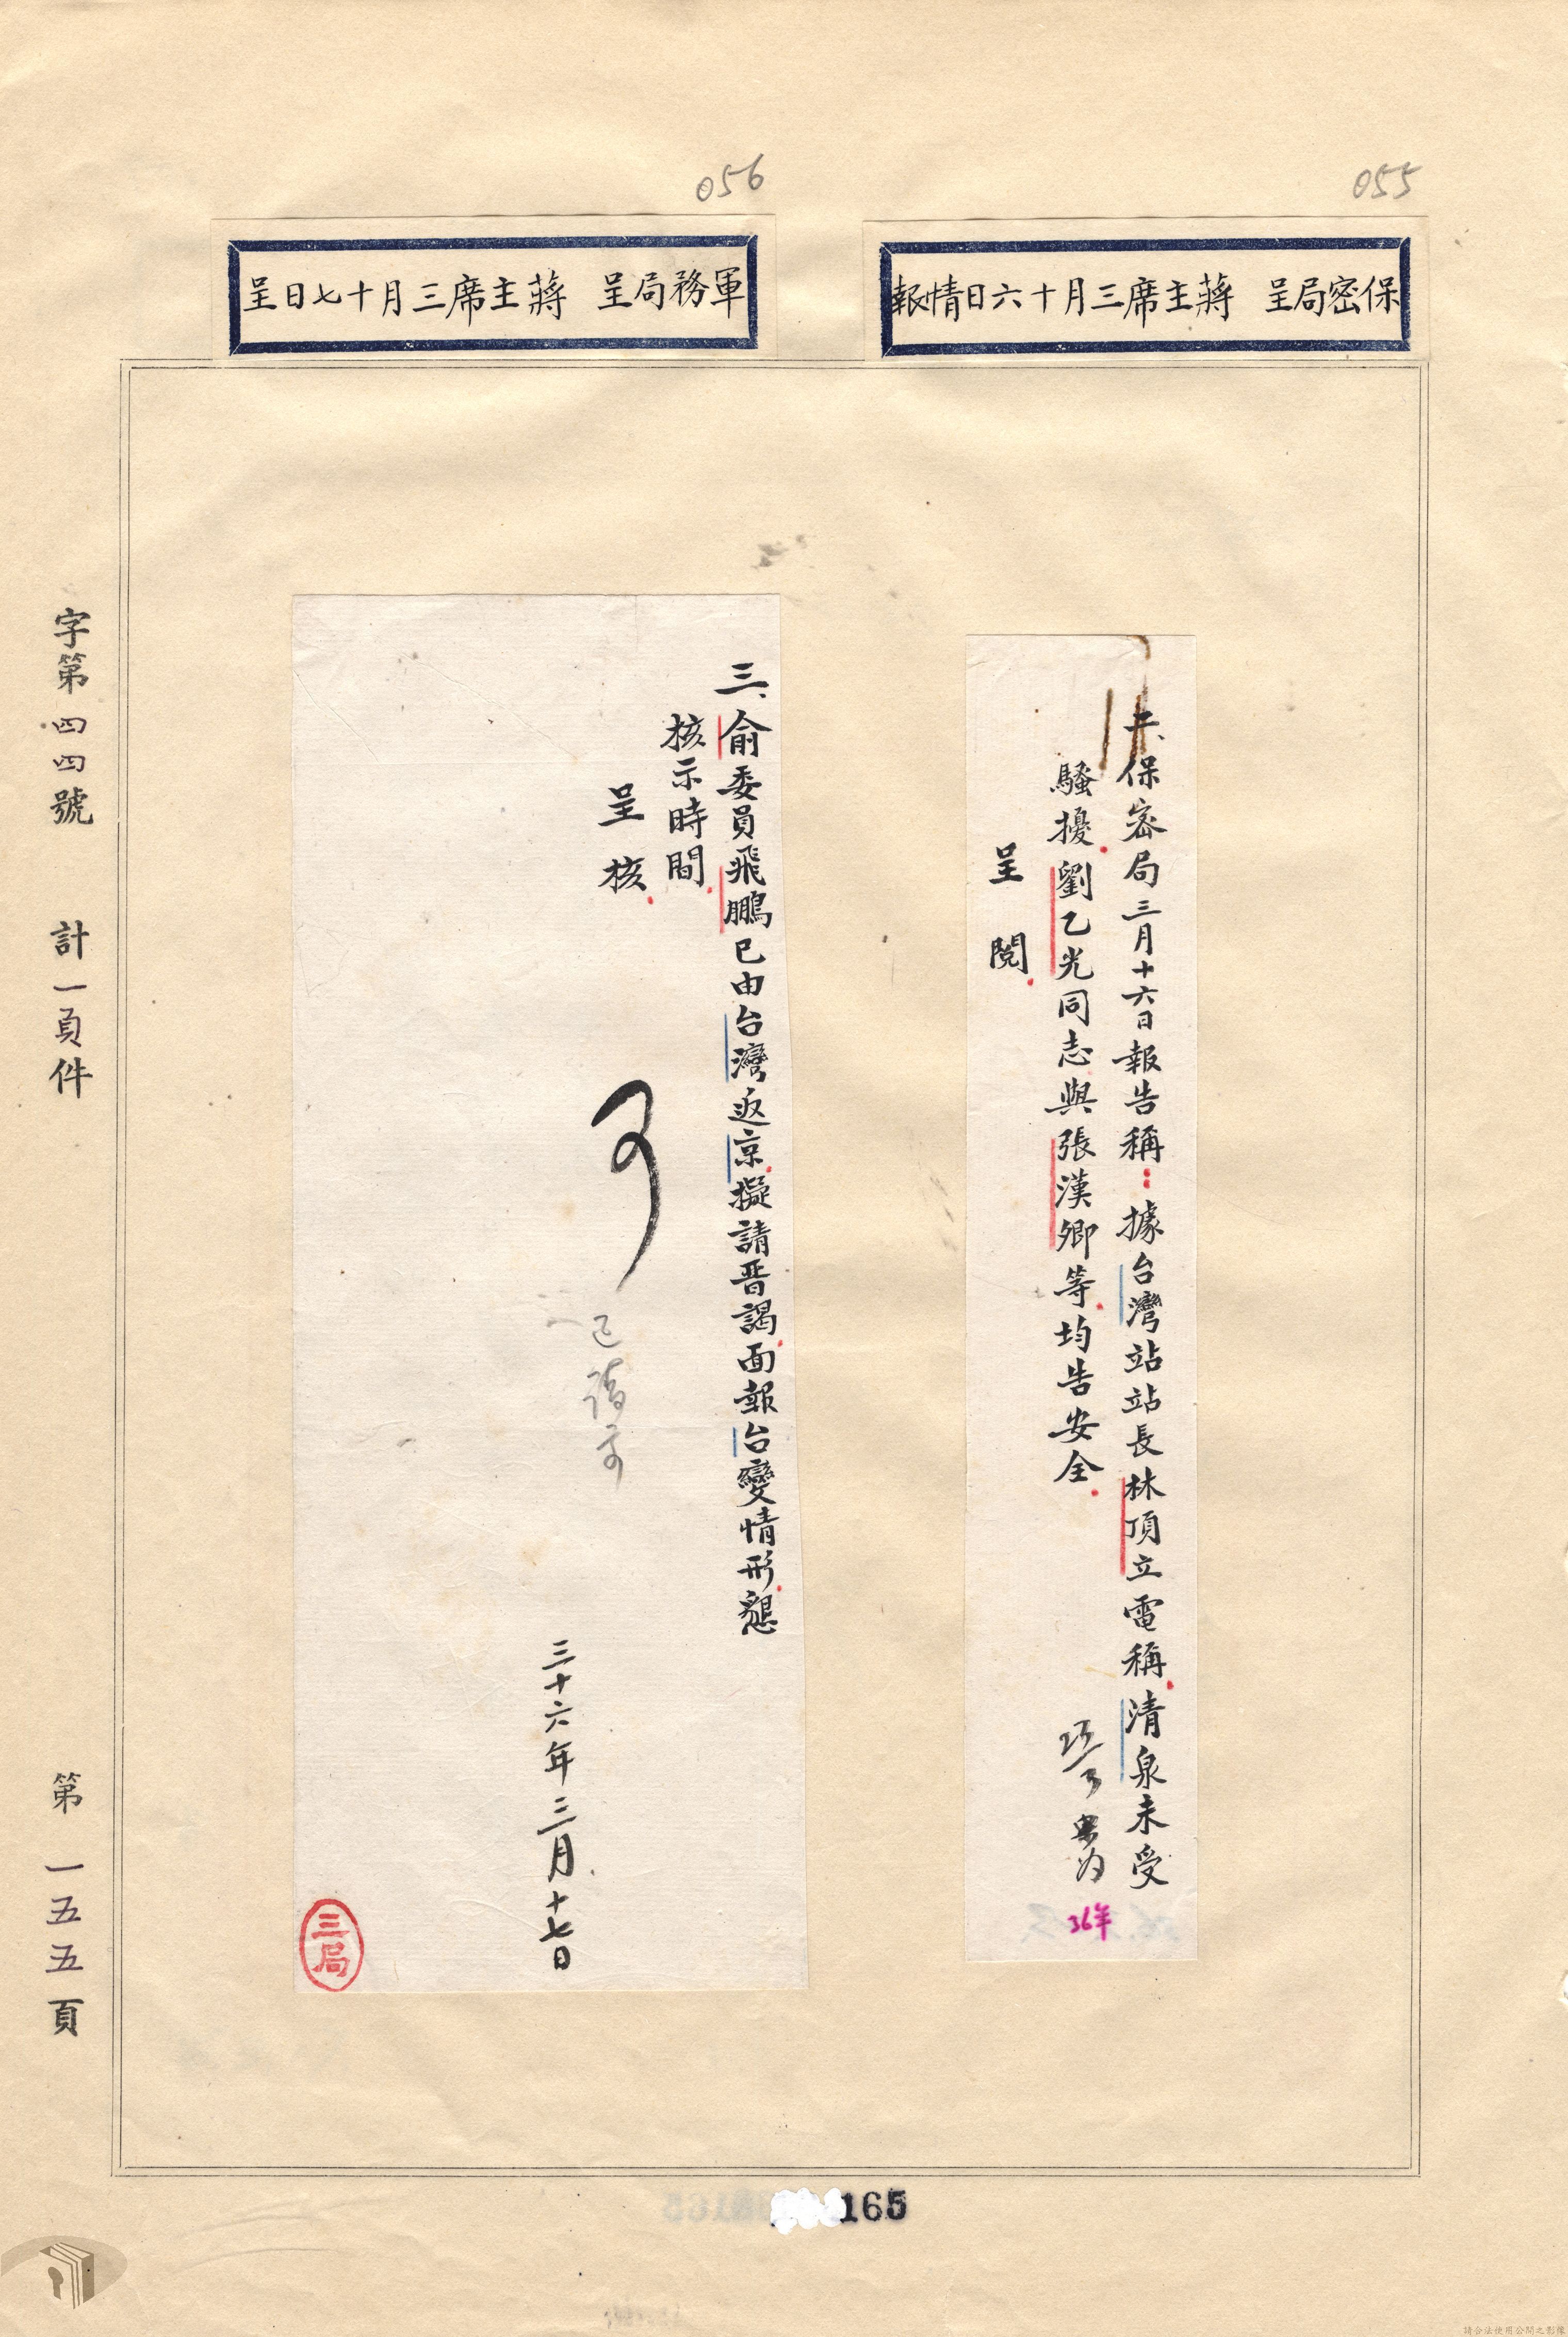 055
保密局呈 蔣主席三月十六日情報
二、保密局三月十六日報告稱：據台灣站站長林頂立電稱清泉未受
騷擾劉乙光同志與張漢卿等均告安全
呈閱
36年
056
軍務局呈 蔣主席三月十七日呈
三、俞委員飛鵬已由台灣返京擬請晉謁面報台變情形懇
核示時間
呈核
三十六年三月十七日
三局
字第四四號 計一頁件 第一五五頁
165
請合法使用公開之影像